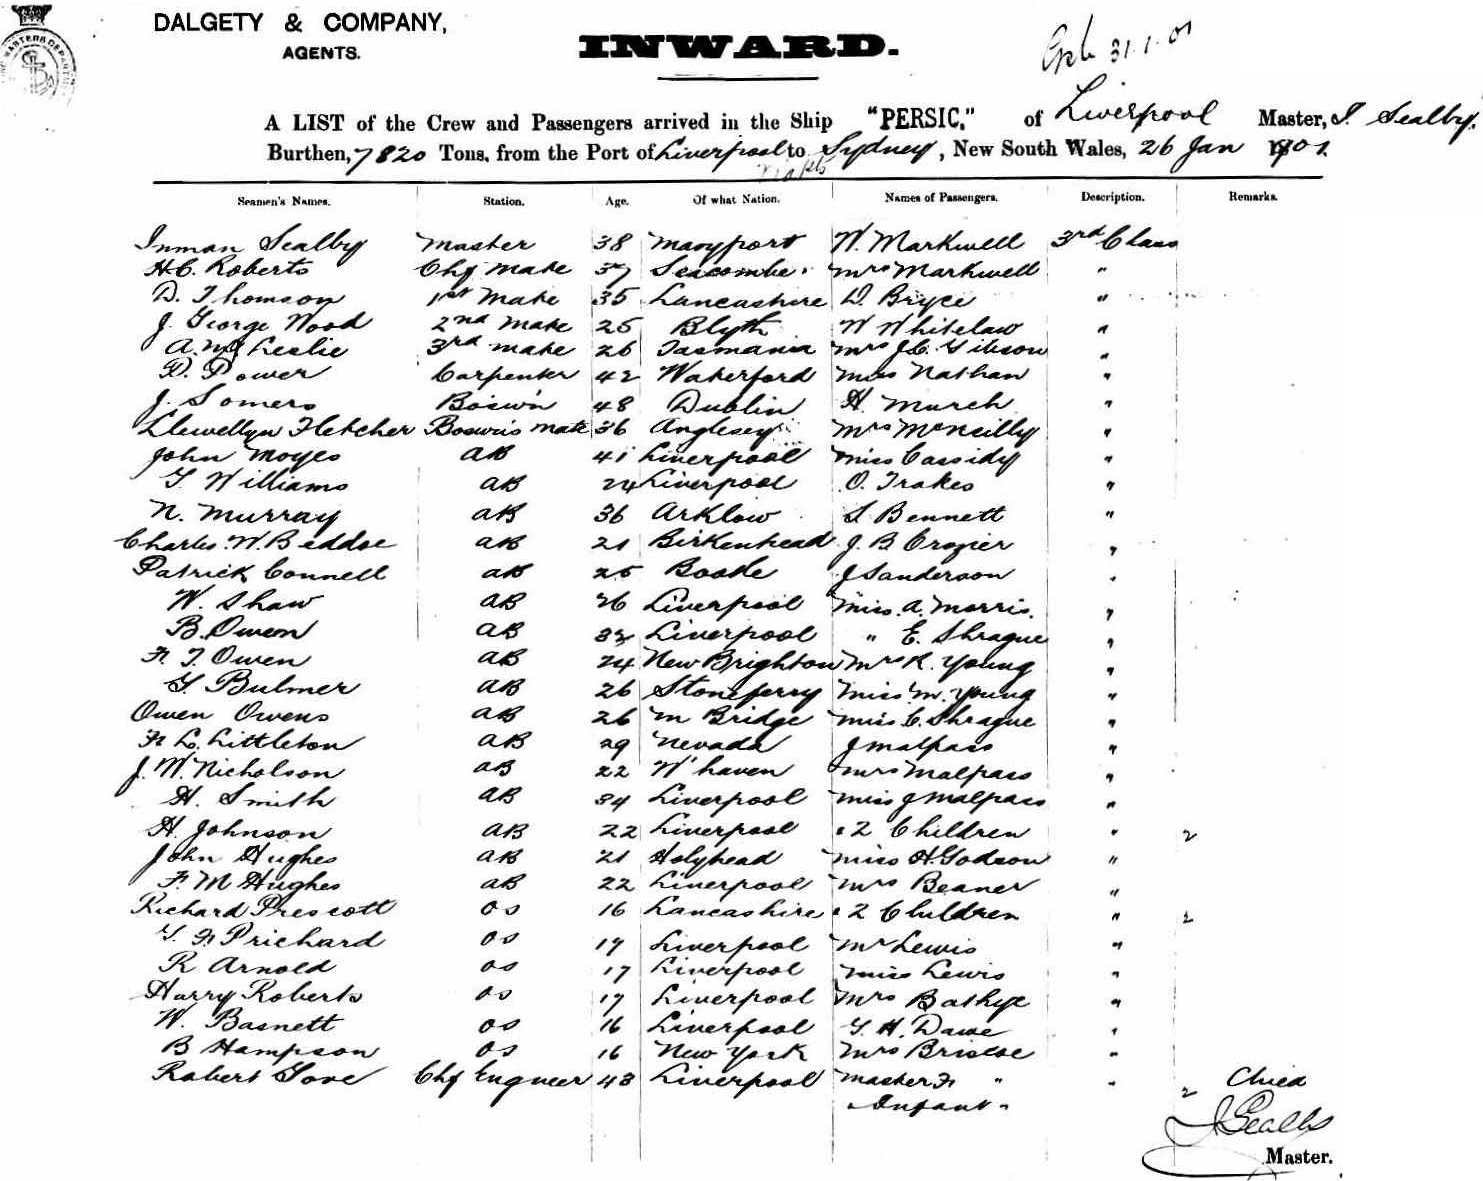 DALGETY & COMPANY,
AGENTS.
INWARD.
31.1.01
A LIST of the Crew and Passengers arrived in the Ship "PERSIC," of Liverpool Master, I. Sealby.
Burthen, 7820 Tons, from the Port of Liverpool to Sydney, New South Wales, 26 Jan 1901.
Seamen's Names. Station. Age. Of what Nation. Names of Passengers. Description. Remarks.
Inman Sealby Master 38 Maryport W. Markwell 3rd Class
H.C. Roberts Chf Mate 37 Seacombe Mrs Markwell "
D. Thomson 1st Mate 35 Lancashire D. Bryce "
J. George Wood 2nd Mate 25 Blyth W Whitelaw "
Leslie 3rd Mate 26 Tasmania Mrs J.C. Gibson "
P. Power Carpenter 42 Waterford Miss Nathan "
J. Somers Bosw'n 48 Dublin H. Murch "
Llewellyn Fletcher Boswn's Mate 36 Anglesey Mrs McNeilly "
John Moyes AB 41 Liverpool Miss Cassidy "
T Williams AB 24 Liverpool O. Trakes "
N. Murray AB 36 Arklow S Bennett "
Charles W. Beddoe AB 21 Birkenhead J. B Crozier "
Patrick Connell AB 25 Bootle J Sanderson "
W. Shaw AB 26 Liverpool Miss A. Morris "
B. Owen AB 32 Liverpool " E. Shrague "
F. T. Owen AB 24 New Brighton Mrs K. Young "
G Bulmer AB 26 Stoneferry Miss M. Young "
Owen Owens AB 26 M Bridge Miss C. Shrague "
F. L. Littleton AB 29 Nevada J Malpass "
J. W. Nicholson AB 22 W'haven Mrs Malpass "
H. Smith AB 34 Liverpool Miss J Malpass "
H. Johnson AB 22 Liverpool " 2 Children " 2
John Hughes AB 21 Holyhead Miss H. Godson "
F. M Hughes AB 22 Liverpool Mrs Beaner "
Richard Prescott OS 16 Lancashire " 2 Children " 2
T. F. Prichard OS 17 Liverpool Mr Lewis "
R Arnold OS 17 Liverpool Miss Lewis "
Harry Roberts OS 17 Liverpool Mrs "
W. Basnett OS 16 Liverpool G. H. Dawe "
B Hampson OS 16 New York Mrs Briscoe "
Robert Gove Chf Engneer 43 Liverpool Master F. " "
" Infant " 2
J Sealby
Master.